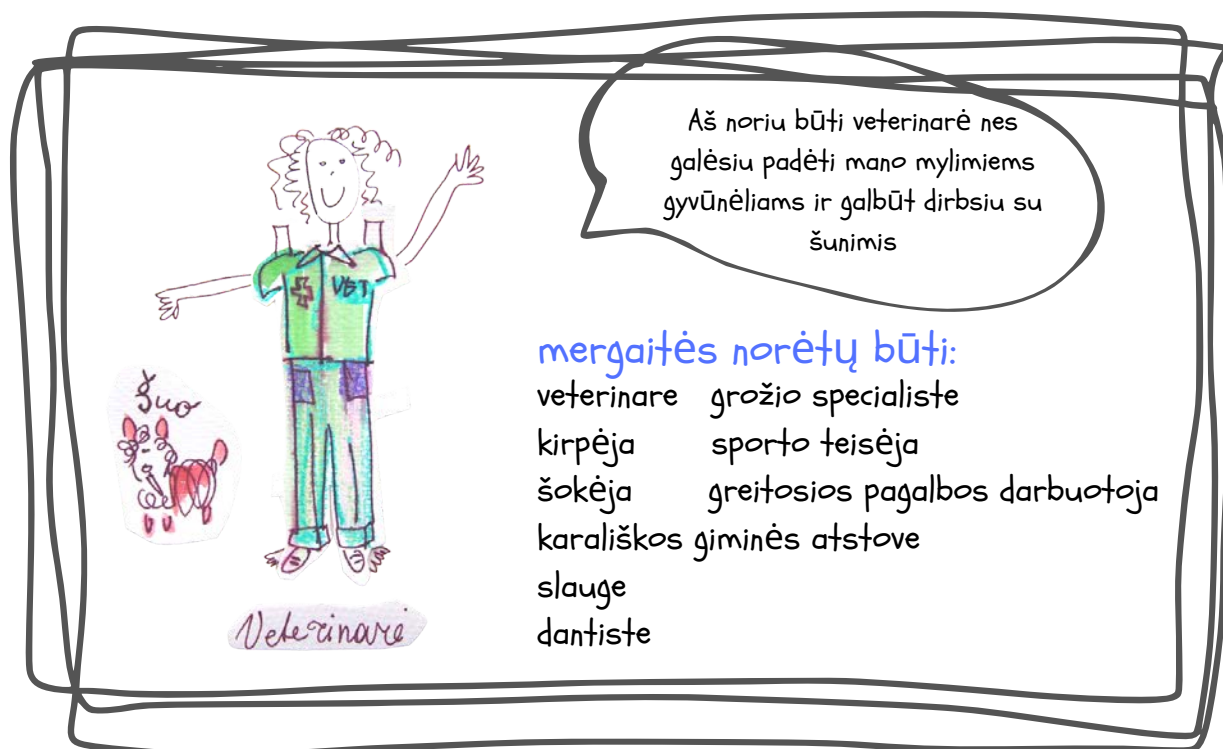 Aš noriu būti veterinarė nes
galėsiu padėti mano mylimiems
gyvūnėliams ir galbūt dirbsiu su
šunimis
VET
Šuo
Veterinarė
mergaitės norėtų būti:
veterinare grožio specialiste
kirpėja sporto teisėja
šokėja greitosios pagalbos darbuotoja
karališkos giminės atstove
slauge
dantiste